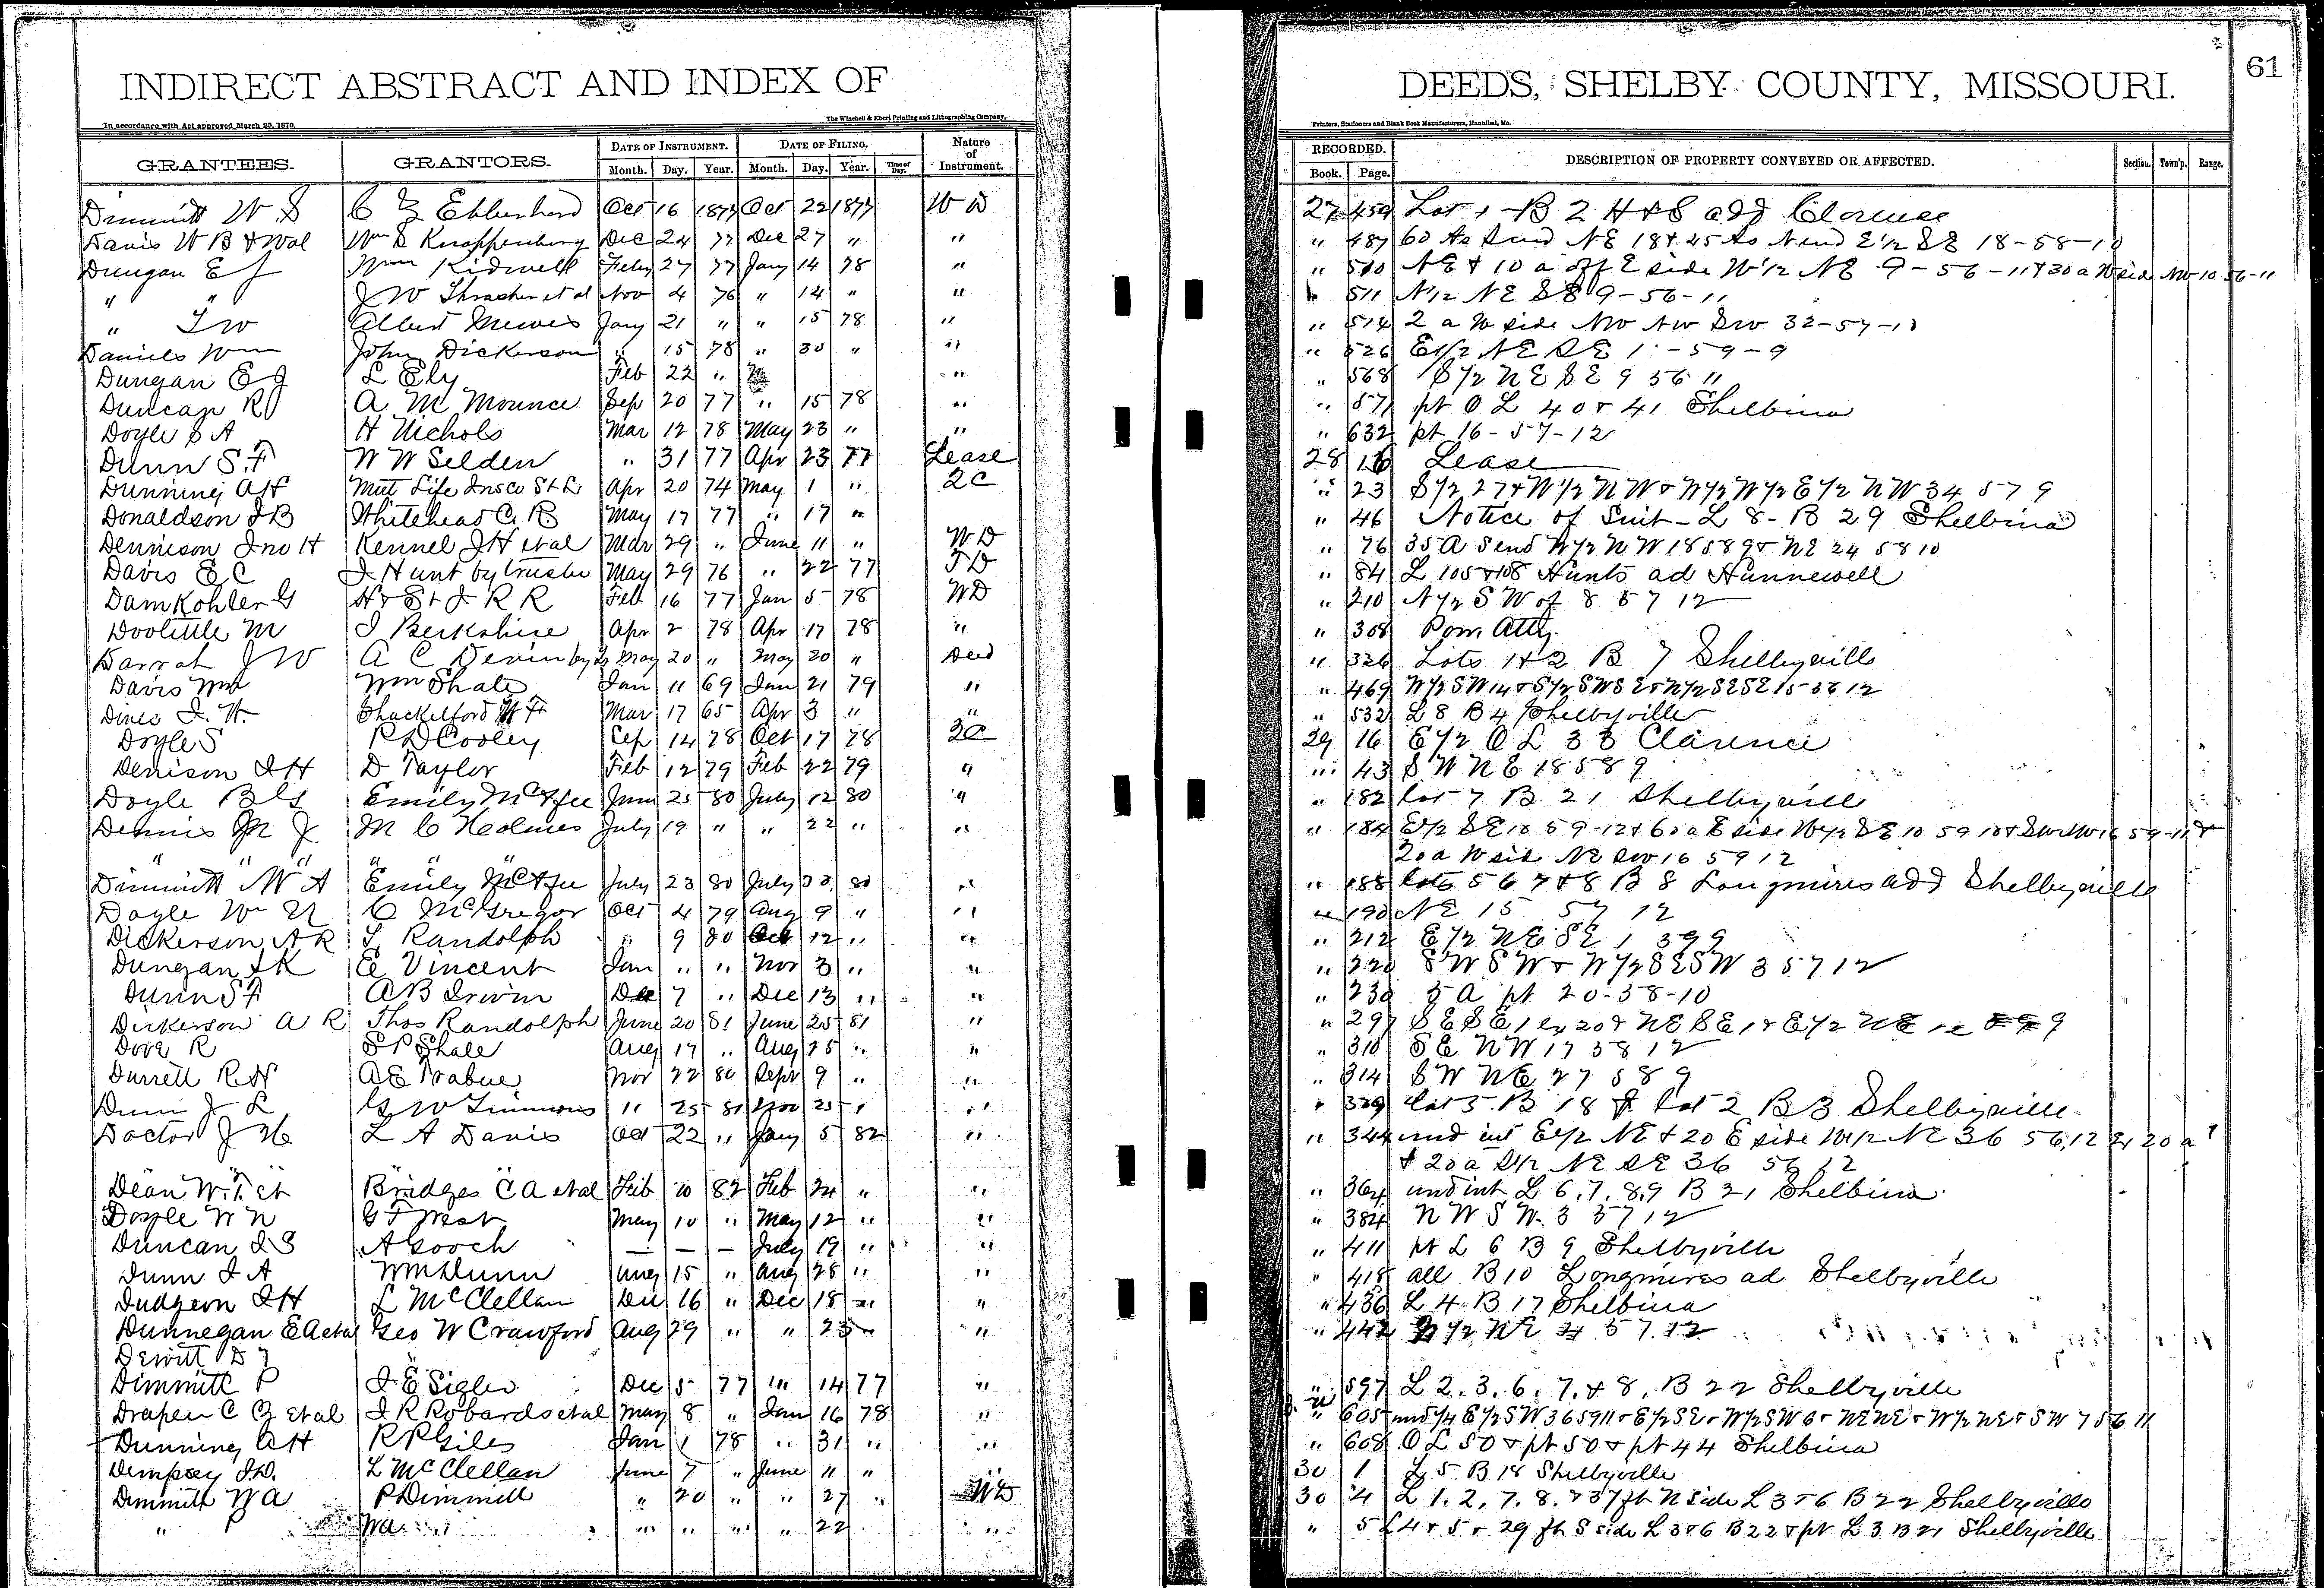 INDIRECT ABSTRACT AND INDEX OF DEEDS, SHELBY COUNTY, MISSOURI. 61
In accordance with Act approved March 25, 1870. The Winchell & Ebert Printing and Lithographing Company, Printers, Stationers and Blank Book Manufacturers, Hannibal, Mo.
GRANTEES. GRANTORS. DATE OF INSTRUMENT. DATE OF FILING. Nature of Instrument. RECORDED. DESCRIPTION OF PROPERTY CONVEYED OR AFFECTED. Section. Town'p. Range.
Month. Day. Year. Month. Day. Year. Time of Day. Book. Page.
Dimmitt W S C Z Ebberhard Oct 16 1877 Oct 22 1877 W D 27 459 Lot 1 B 2 H & S add Clarence
Davis W B & Wal Wm S Knappenberg Dec 24 77 Dec 27 " " " 487 60 As S end NE 18 & 45 As N end E 1/2 SE 18-58-10
Dungan E J Wm Kidwell Feby 27 77 Jany 14 78 " " 510 NE & 10 a off E side W 1/2 NE 9-56-11 & 30 a W side NW 10 56-11
" " J W Thrasher et al Nov 4 76 " 14 " " " 511 N 1/2 NE SE 9-56-11
" T W Albert Mewes Jany 21 " " 15 78 " " 514 2 a W side NW NW SW 32-57-10
Daniels Wm John Dickerson " 15 78 " 30 " " " 526 E 1/2 NE SE 1-59-9
Dungan E J L Ely Feb 22 " " " 568 S 1/2 NE SE 9 56 11
Duncan R J A M Mounce Sep 20 77 " 15 78 " " 571 pt O L 40 & 41 Shelbina
Doyle S A H Nichols Mar 12 78 May 23 " " " 632 pt 16-57-12
Dunn S. F W W Selden " 31 77 Apr 23 77 Lease 28 16 Lease
Dunning A H Mut Life Ins Co St L Apr 20 74 May 1 " 2C " 23 S 1/2 27 & W 1/2 NW & W 1/2 W 1/2 E 1/2 NW 34 57 9
Donaldson J B Whitehead C. R May 17 77 " 17 " " 46 Notice of Suit - L 8 - B 29 Shelbina
Dennison Jno H Kennel J H et al Mar 29 " June 11 " W D " 76 35 A S end W 1/2 NW 18 58 9 & NE 24 58 10
Davis E C J Hunt by trustee May 29 76 " 22 77 T D " 84 L 105 & 108 Hunts ad Hunnewell
Damkohler G H & St J R R Feb 16 77 Jan 5 78 W D " 210 N 1/2 SW of 8 57 12
Doolittle M J Berkshire Apr 2 78 Apr 17 78 " " 308 Pow. Atty.
Darrah J W A C Devin by Tr May 20 " May 20 " Deed " 326 Lots 1 & 2 B 7 Shelbyville
Davis Wm Wm Shate Jan 11 69 Jan 21 79 " " 469 W 1/2 SW 14 & S 1/2 SW SE & N 1/2 SE SE 15-56 12
Dines J. W. Shackelford W F Mar 17 65 Apr 3 " " " 532 L 8 B 4 Shelbyville
Doyle S R D Cooley Sep 14 78 Oct 17 78 2C 29 16 E 1/2 O L 33 Clarence
Denison J H D Taylor Feb 12 79 Feb 22 79 " " 43 SW NE 18 58 9
Doyle B G Emily McAfee June 25 80 July 12 80 " " 182 lot 7 B 21 Shelbyville
Dennis M J M C Holmes July 19 " " 22 " " " 184 E 1/2 SE 10 59-12 & 60 a E side W 1/2 SE 10 59 10 & SW NW 16 59-11 &
" " " " " " 20 a W side NE SW 16 59 12
Dimmitt W A Emily McAfee July 23 80 July 23 80 " " 188 lots 5 6 7 & 8 B 8 Longmires add Shelbyville
Doyle Wm N C McGregor Oct 4 79 Aug 9 " " " 190 NE 15 57 12
Dickerson A R T Randolph " 9 80 Oct 12 " " " 212 E 1/2 NE SE 1 59 9
Dungan J K E Vincent Jan " " Nov 3 " " " 220 SW SW & W 1/2 SE SW 3 57 12
Dunn S F A B Irwin Dec 7 " Dec 13 " " " 230 5 A pt 20-58-10
Dickerson A R Thos Randolph June 20 81 June 25 81 " " 297 SE SE 1 ex 20 & NE SE 1 & E 1/2 NE 9
Dove R S P Shale Aug 17 " Aug 25 " " " 310 SE NW 17 58 12
Durrett R H A E Trabue Nov 22 80 Sepr 9 " " " 314 SW NE 27 58 9
Dunn J L G W Timmons " 25 81 Nov 25 " " " 329 lot 5 B 18 & lot 2 B 3 Shelbyville
Doctor J H L A Davis Oct 22 " Jany 5 82 " " 344 und int E 1/2 NE & 20 E side W 1/2 NE 36 56, 12 ex 20 a
& 20 a S 1/2 NE SE 36 56 12
Dean W. T. et Bridges C A et al Feb 10 82 Feb 24 " " " 364 und int L 6, 7, 8, 9 B 21 Shelbina
Doyle W N G T West May 10 " May 12 " " " 384 NW SW 3 57 12
Duncan J S A Gooch — — — July 19 " " " 411 pt L 6 B 9 Shelbyville
Dunn J A Wm Dunn Aug 15 " Aug 28 " " " 418 all B 10 Longmires ad Shelbyville
Dudgeon J H L McClellan Dec 16 " Dec 18 " " " 436 L 4 B 17 Shelbina
Dunnegan E A et al Geo W Crawford Aug 29 " " 23 " " " 442 1/2 NE 4 57 12
Dewitt D
Dimmitt P J E Sigler Dec 5 77 " 14 77 " " 597 L 2, 3, 6, 7, & 8, B 22 Shelbyville
Draper C Z et al J R Robards et al May 8 " Jan 16 78 " " 605 und 1/4 E 1/2 SW 36 59 11 & E 1/2 SE & W 1/2 SW 6 & NE NE & W 1/2 NE & SW 7 56 11
Dunning A H R P Giles Jan 1 78 " 31 " " " 608 O L 50 & pt 50 & pt 44 Shelbina
Dempsey J D. L McClellan June 7 " June 11 " " 30 1 L 5 B 18 Shelbyville
Dimmitt W A P Dimmitt " 20 " " 27 " W D 30 4 L 1, 2, 7, 8, & 37 ft N side L 3 & 6 B 22 Shelbyville
" P W A " " " " 22 " " 5 L 4 & 5 & 29 ft S side L 3 & 6 B 22 & pt L 3 B 21 Shelbyville